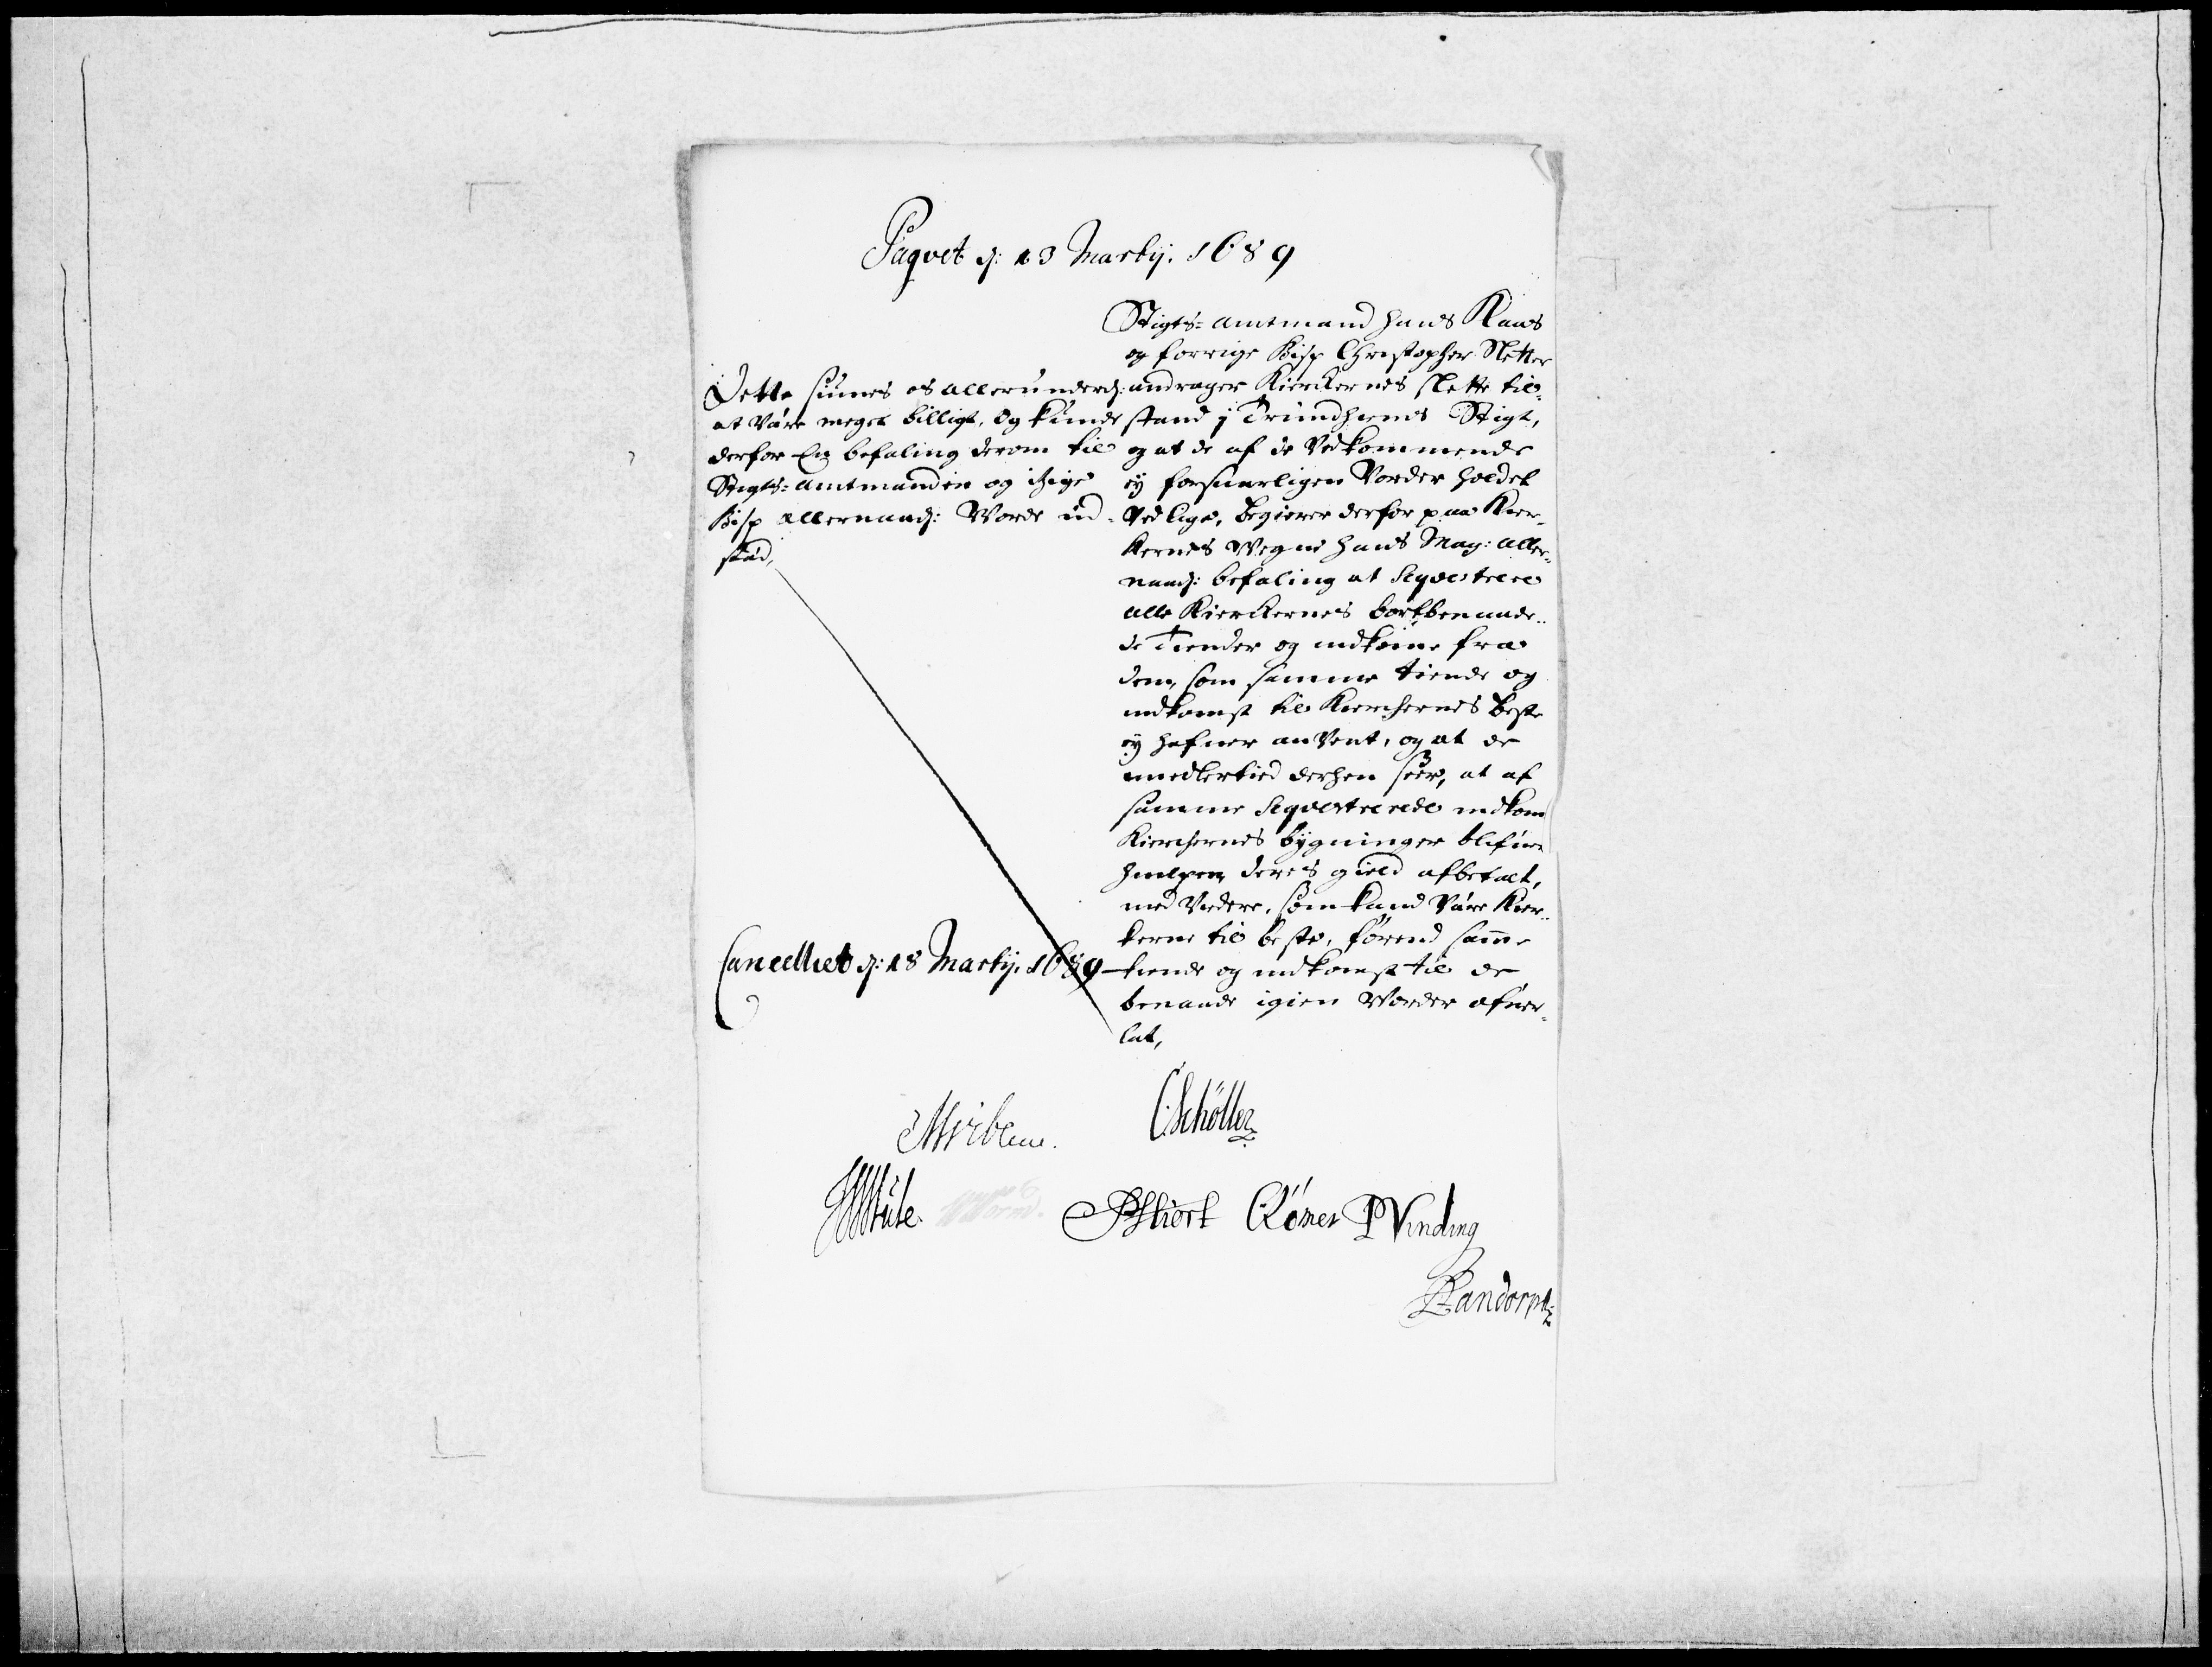 Paqvet d: 13 Martij. 1689
Stigts-amtmand Hans Kaas
og forrige Bisp Christopher Sletter
andrager Kierckernes slette til-
stand j Trundhiems Stigt,
og at de af de Vedkommende
ej forsuarligen Vorder holdet
Ved lige, Begierer derfor paa Kier-
kernes Wegne Hans May: aller-
naad: befaling at Seqvestrere
alle Kierckernes bortbenaade-
de Tiender og indkome fra
dem, som samme tiende og
indkomst til Kierchernes Beste
ej hafuer anVent, og at de
imidlertid derhen seer, at af
samme Seqvestrerede indkom
Kierchernes bygninger blifuer
hiulpen deres gield afbetalt,
med Videre, som kand Være Kier-
kerne til beste, førend samme
tiende og indkomst til de
benaade igien Worder ofuer-
lat,
Dette siunes os allerunderd:
at Være meget billigt, og kunde
derfor En befaling derom til
Stigts-amtmanden og itzige
Bisp allernaad: Worde ud-
sted,
Cancelliet d: 18 Martij. 1689
MWibe
CSchöller
Worm
PSkiort CRömer PVinding